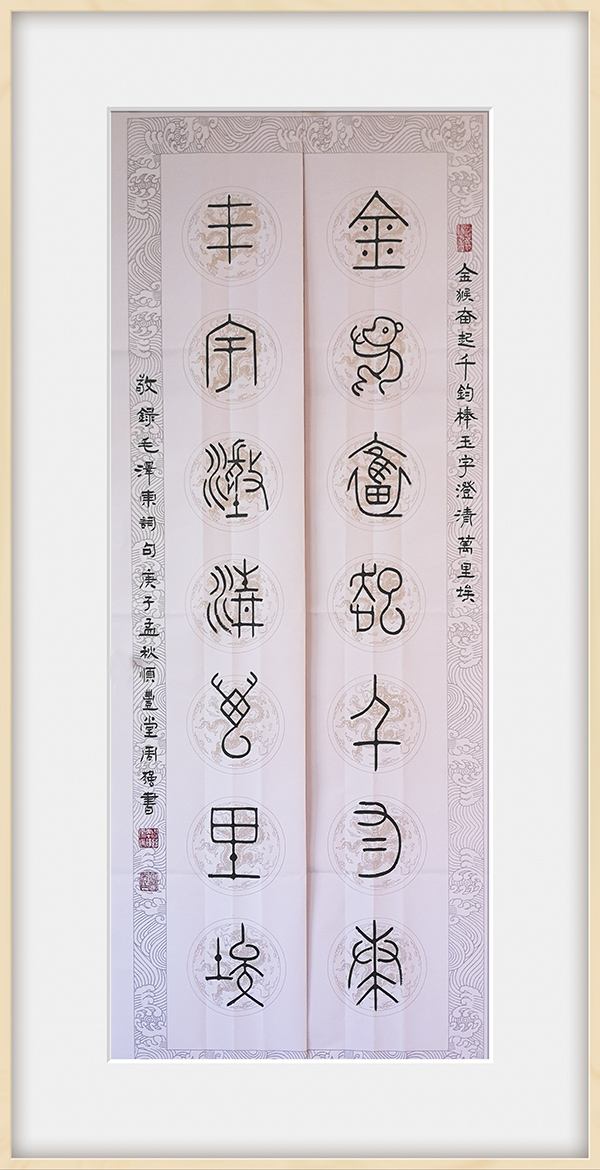 金猴奮起千鈞棒玉宇澄清萬里埃
金猴奮起千鈞棒
玉宇澄清萬里埃
敬錄毛澤東詞句庚子孟秋順豐堂周強書